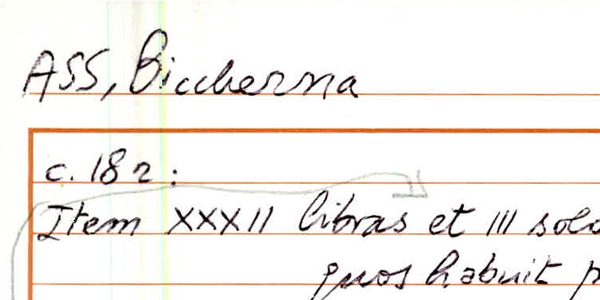 ASS, Biccherna
c. 18 r:
Item XXXII libras et III solo
quos habuit p